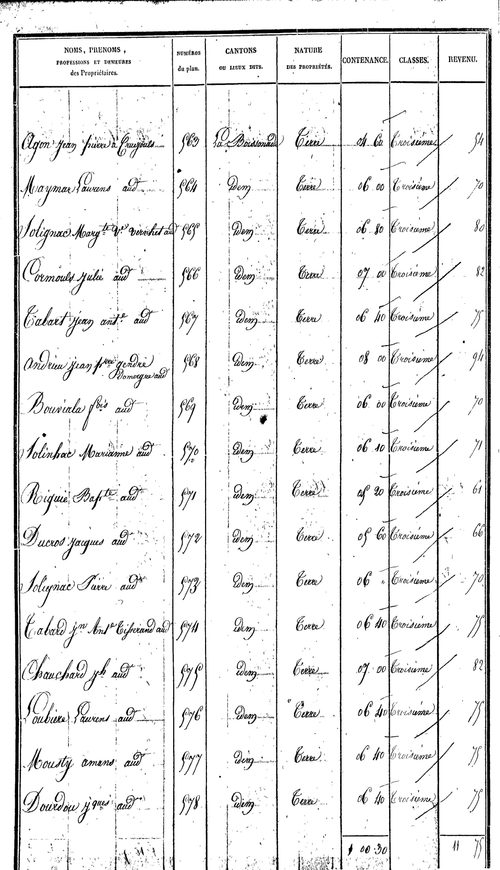 NOMS, PRENOMS, PROFESSIONS ET DEMEURES des Propriétaires. NUMÉROS du plan. CANTONS OU LIEUX DITS. NATURE DES PROPRIÉTÉS. CONTENANCE. CLASSES. REVENU.
Agon jean pierre à 563 La Boissonade Terre 04 60 Troisième 54
Maymar Laurens aud 564 Idem Terre 06 00 Troisième 70
Solignac Marg.te V.e aud 565 Idem Terre 06 80 Troisième 80
Cormouls julie aud 566 Idem Terre 07 00 Troisième 82
Tabart jean ant.e aud 567 Idem Terre 06 40 Troisième 75
Andrieu jean p.rre gendre
Domergue aud 568 Idem Terre 08 00 Troisième 94
Bouviala f.ois aud 569 Idem Terre 06 00 Troisième 70
Solinhac Marianne aud 570 Idem Terre 06 10 Troisième 71
Riguié Bap.te aud 571 idem Terre 05 20 Troisième 61
Ducros jacques aud 572 Idem Terre 05 60 Troisième 66
Solignac Pierre aud 573 Idem Terre 06 " Troisième 70
Tabard j.n Ant.e Tisserand aud 574 Idem Terre 06 40 Troisième 75
Chauchard j.h aud 575 Idem Terre 07 00 Troisième 82
Loubière Laurens aud 576 Idem Terre 06 40 Troisième 75
Mousty amans aud 577 idem Terre 06 40 Troisième 75
Dourdou j.ques aud 578 Idem Terre 06 40 Troisième 75
1 00 30 11 75